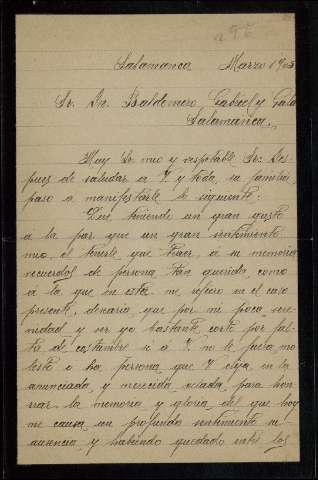 Salamanca Marzo 1905
Sr. Dr. Baldomero Gabriel y Galá
Salamanca.
Muy Sr. mio y respetable Sr: Des-
pues de saludar a V. y toda su familia
paso a manifestarle lo siguiente:
Que teniendo un gran gusto
a la par que un gran sentimiento
mio, el tenerle que traer, a su memoria
recuerdos de persona tan querida, como
a la que en esta me refiero en el caso
presente, desearia, que por mi poca sere-
nidad y ser yo bastante corto por fal-
ta de costumbre si a V. no le fuera mo-
lesto o ha persona que V. elija en la
anunciada y merecida velada, para hon-
rrar la memoria y gloria del que hoy
me causa un profundo sentimiento su
ausencia y habiendo quedado los